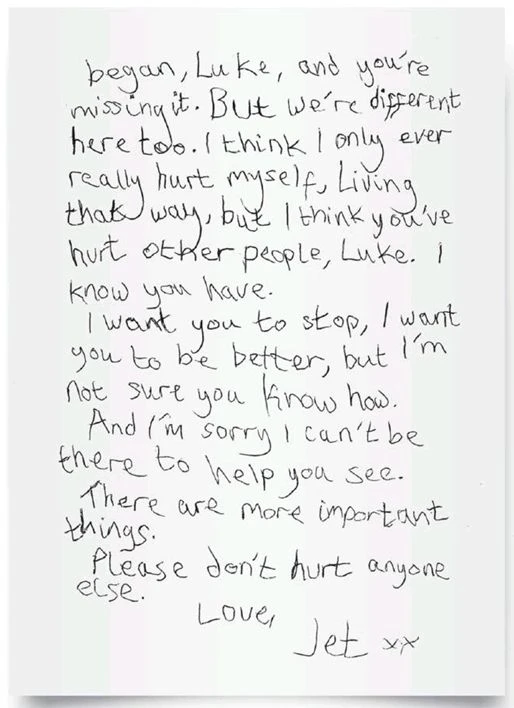 began, Luke, and you're
missing it. But we're different
here too. I think I only ever
really hurt myself, Living
that way, but I think you've
hurt other people, Luke. I
know you have.
I want you to stop, I want
you to be better, but I'm
not sure you know how.
And I'm sorry I can't be
there to help you see.
There are more important
things.
Please don't hurt anyone
else.
Love,
Jet xx